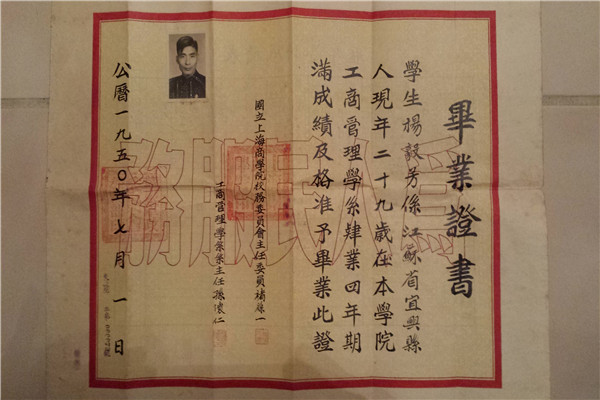 畢業證書
學生楊毅芳係江蘇省宜興縣
人現年二十九歲在本學院
工商管理學系肄業四年期
滿成績及格准予畢業此證
國立上海商學院校務委員會主任委員褚葆一
工商管理學系系主任孫懷仁
公曆一九五〇年七月一日
為人民服務